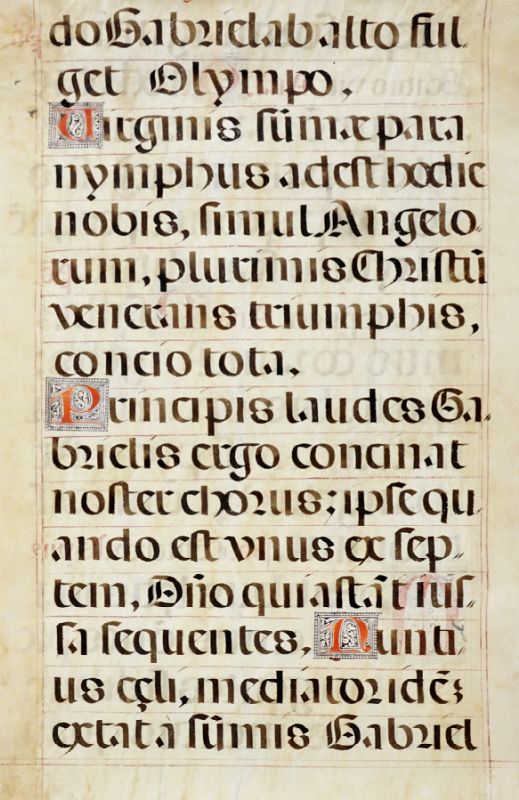 do Gabriel ab alto ful
get Olympo.
Virginis sūmæ para
nymphus adest hodie
nobis, simul Angelo
rum, plurimis Christū
venerans triumphis,
concio tota.
Principis laudes Ga-
brielis ergo concinat
noster chorus: ipse qu-
ando est vnus ex sep-
tem, Dño qui astāt ius-
sa sequentes. Nunti-
us cęli, mediator idēȝ
extat a sūmis Gabriel